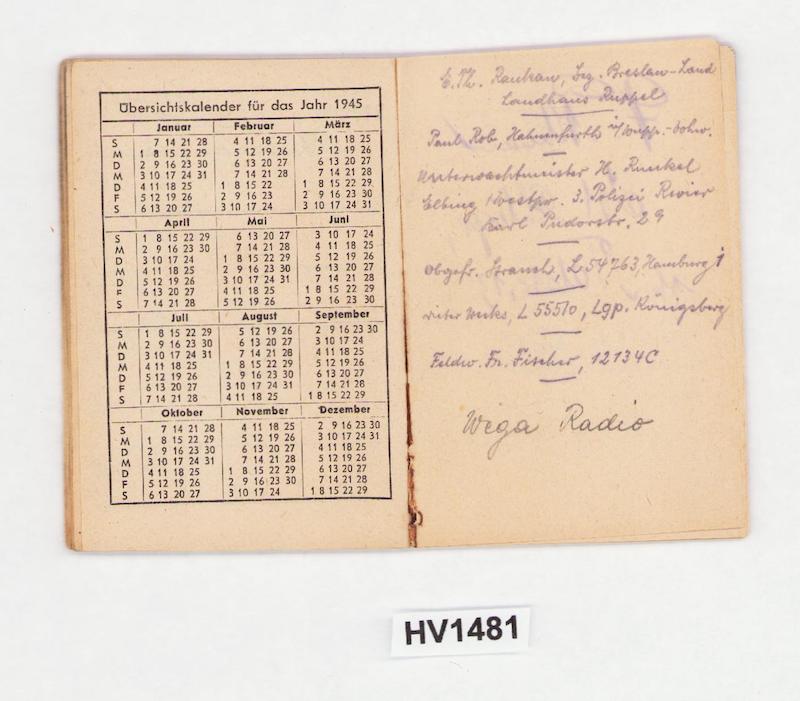 Übersichtskalender für das Jahr 1945
Januar Februar März
S 7 14 21 28 4 11 18 25 4 11 18 25
M 1 8 15 22 29 5 12 19 26 5 12 19 26
D 2 9 16 23 30 6 13 20 27 6 13 20 27
M 3 10 17 24 31 7 14 21 28 7 14 21 28
D 4 11 18 25 1 8 15 22 1 8 15 22 29
F 5 12 19 26 2 9 16 23 2 9 16 23 30
S 6 13 20 27 3 10 17 24 3 10 17 24 31
April Mai Juni
S 1 8 15 22 29 6 13 20 27 3 10 17 24
M 2 9 16 23 30 7 14 21 28 4 11 18 25
D 3 10 17 24 1 8 15 22 29 5 12 19 26
M 4 11 18 25 2 9 16 23 30 6 13 20 27
D 5 12 19 26 3 10 17 24 31 7 14 21 28
F 6 13 20 27 4 11 18 25 1 8 15 22 29
S 7 14 21 28 5 12 19 26 2 9 16 23 30
Juli August September
S 1 8 15 22 29 5 12 19 26 2 9 16 23 30
M 2 9 16 23 30 6 13 20 27 3 10 17 24
D 3 10 17 24 31 7 14 21 28 4 11 18 25
M 4 11 18 25 1 8 15 22 29 5 12 19 26
D 5 12 19 26 2 9 16 23 30 6 13 20 27
F 6 13 20 27 3 10 17 24 31 7 14 21 28
S 7 14 21 28 4 11 18 25 1 8 15 22 29
Oktober November Dezember
S 7 14 21 28 4 11 18 25 2 9 16 23 30
M 1 8 15 22 29 5 12 19 26 3 10 17 24 31
D 2 9 16 23 30 6 13 20 27 4 11 18 25
M 3 10 17 24 31 7 14 21 28 5 12 19 26
D 4 11 18 25 1 8 15 22 29 6 13 20 27
F 5 12 19 26 2 9 16 23 30 7 14 21 28
S 6 13 20 27 3 10 17 24 1 8 15 22 29
E. Th. Rankau, Bez. Breslau-Land
Landhaus Ruppel
Paul Rob, Hahnenfurth
Unterwachtmeister H. Runkel
Elbing Westpr. 3. Polizei Revier
Karl Pudorstr. 29
Obgefr. Strauch, L 54763, Hamburg 1
L 55510, Lgp. Königsberg
Feldw. Fr. Fischer, 12134C
Wega Radio
HV1481